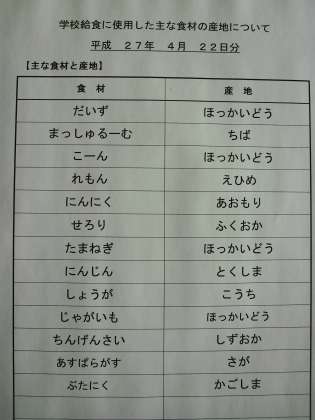 学校給食に使用した主な食材の産地について
平成 27年 4月 22日分
【主な食材と産地】
食 材 産 地
だいず ほっかいどう
まっしゅるーむ ちば
こーん ほっかいどう
れもん えひめ
にんにく あおもり
せろり ふくおか
たまねぎ ほっかいどう
にんじん とくしま
しょうが こうち
じゃがいも ほっかいどう
ちんげんさい しずおか
あすぱらがす さが
ぶたにく かごしま